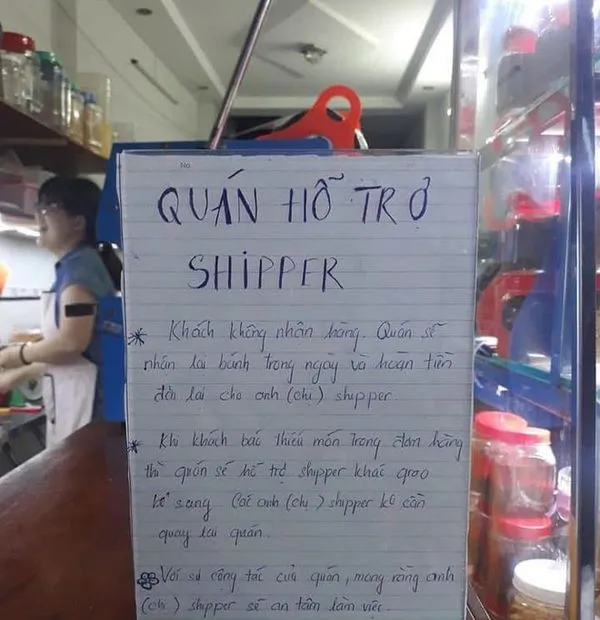 No.
QUÁN HỖ TRỢ
SHIPPER
* Khách không nhận hàng. Quán sẽ
nhận lại bánh trong ngày và hoàn tiền
đơn lại cho anh (chị) shipper.
* Khi khách báo thiếu món trong đơn hàng
thì quán sẽ hỗ trợ shipper khác giao
bổ sung. Các anh (chị) shipper ko cần
quay lại quán.
Với sự cộng tác của quán, mong rằng anh
(chị) shipper sẽ an tâm làm việc.